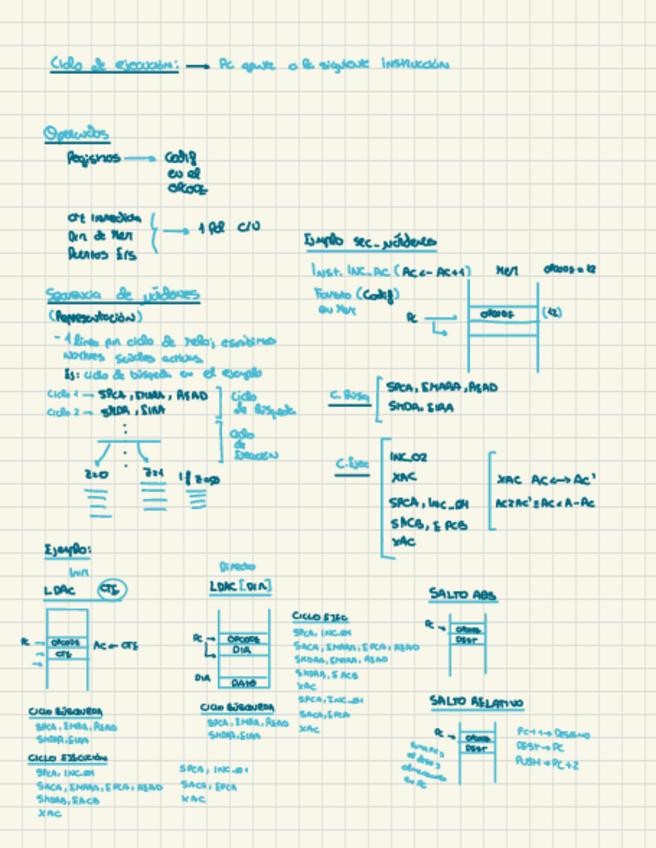 Ciclo de ejecución: → PC apunta a la siguiente instrucción
Operandos
Registros → Codif
en el
OPCODE
CTE inmediata
Dir de Mem
Puertos E/S
→ 1 Pal C/U
Secuencia de μórdenes
(Representación)
- 1 línea por ciclo de reloj, escribimos
nombres señales activas
Ej: ciclo de búsqueda en el ejemplo
Ciclo 1 → SPCA, EMARA, READ
Ciclo 2 → SMDA, EIRA
Ciclo
de Búsqueda
Ciclo
de
Ejecución
Z=0
Z=1
Ejemplo sec_μórdenes
Inst. INC_AC (AC<-AC+1)
Formato (Codif)
en Mem
MEM
OPCODE = 12
PC
OPCODE
(12)
C. Búsq
SPCA, EMARA, READ
SMDA, EIRA
C. Ejec
INC_02
XAC
SPCA, INC_01
SACB, EPCB
XAC
XAC AC<->AC'
Ejemplo:
Inm
LDAC CTE
PC
OPCODE
CTE
AC <- CTE
CICLO BÚSQUEDA
SPCA, EMARA, READ
SMDA, EIRA
CICLO EJECUCIÓN
SPCA, INC_01
SACA, EMARA, EPCA, READ
SMDA, EACB
XAC
Directo
LDAC [DIR]
PC
OPCODE
DIR
DIR
DATO
CICLO BÚSQUEDA
SPCA, EMARA, READ
SMDA, EIRA
SPCA, INC_01
SACA, EPCA
XAC
CICLO EJEC
SPCA, INC_01
SACA, EMARA, EPCA, READ
SMDA, EMARA, READ
SMDA, EACB
XAC
SPCA, INC_01
SACA, EPCA
XAC
SALTO ABS
PC
OPCODE
DEST
SALTO RELATIVO
PC
OPCODE
DEST
DEST → PC
PUSH → PC+2